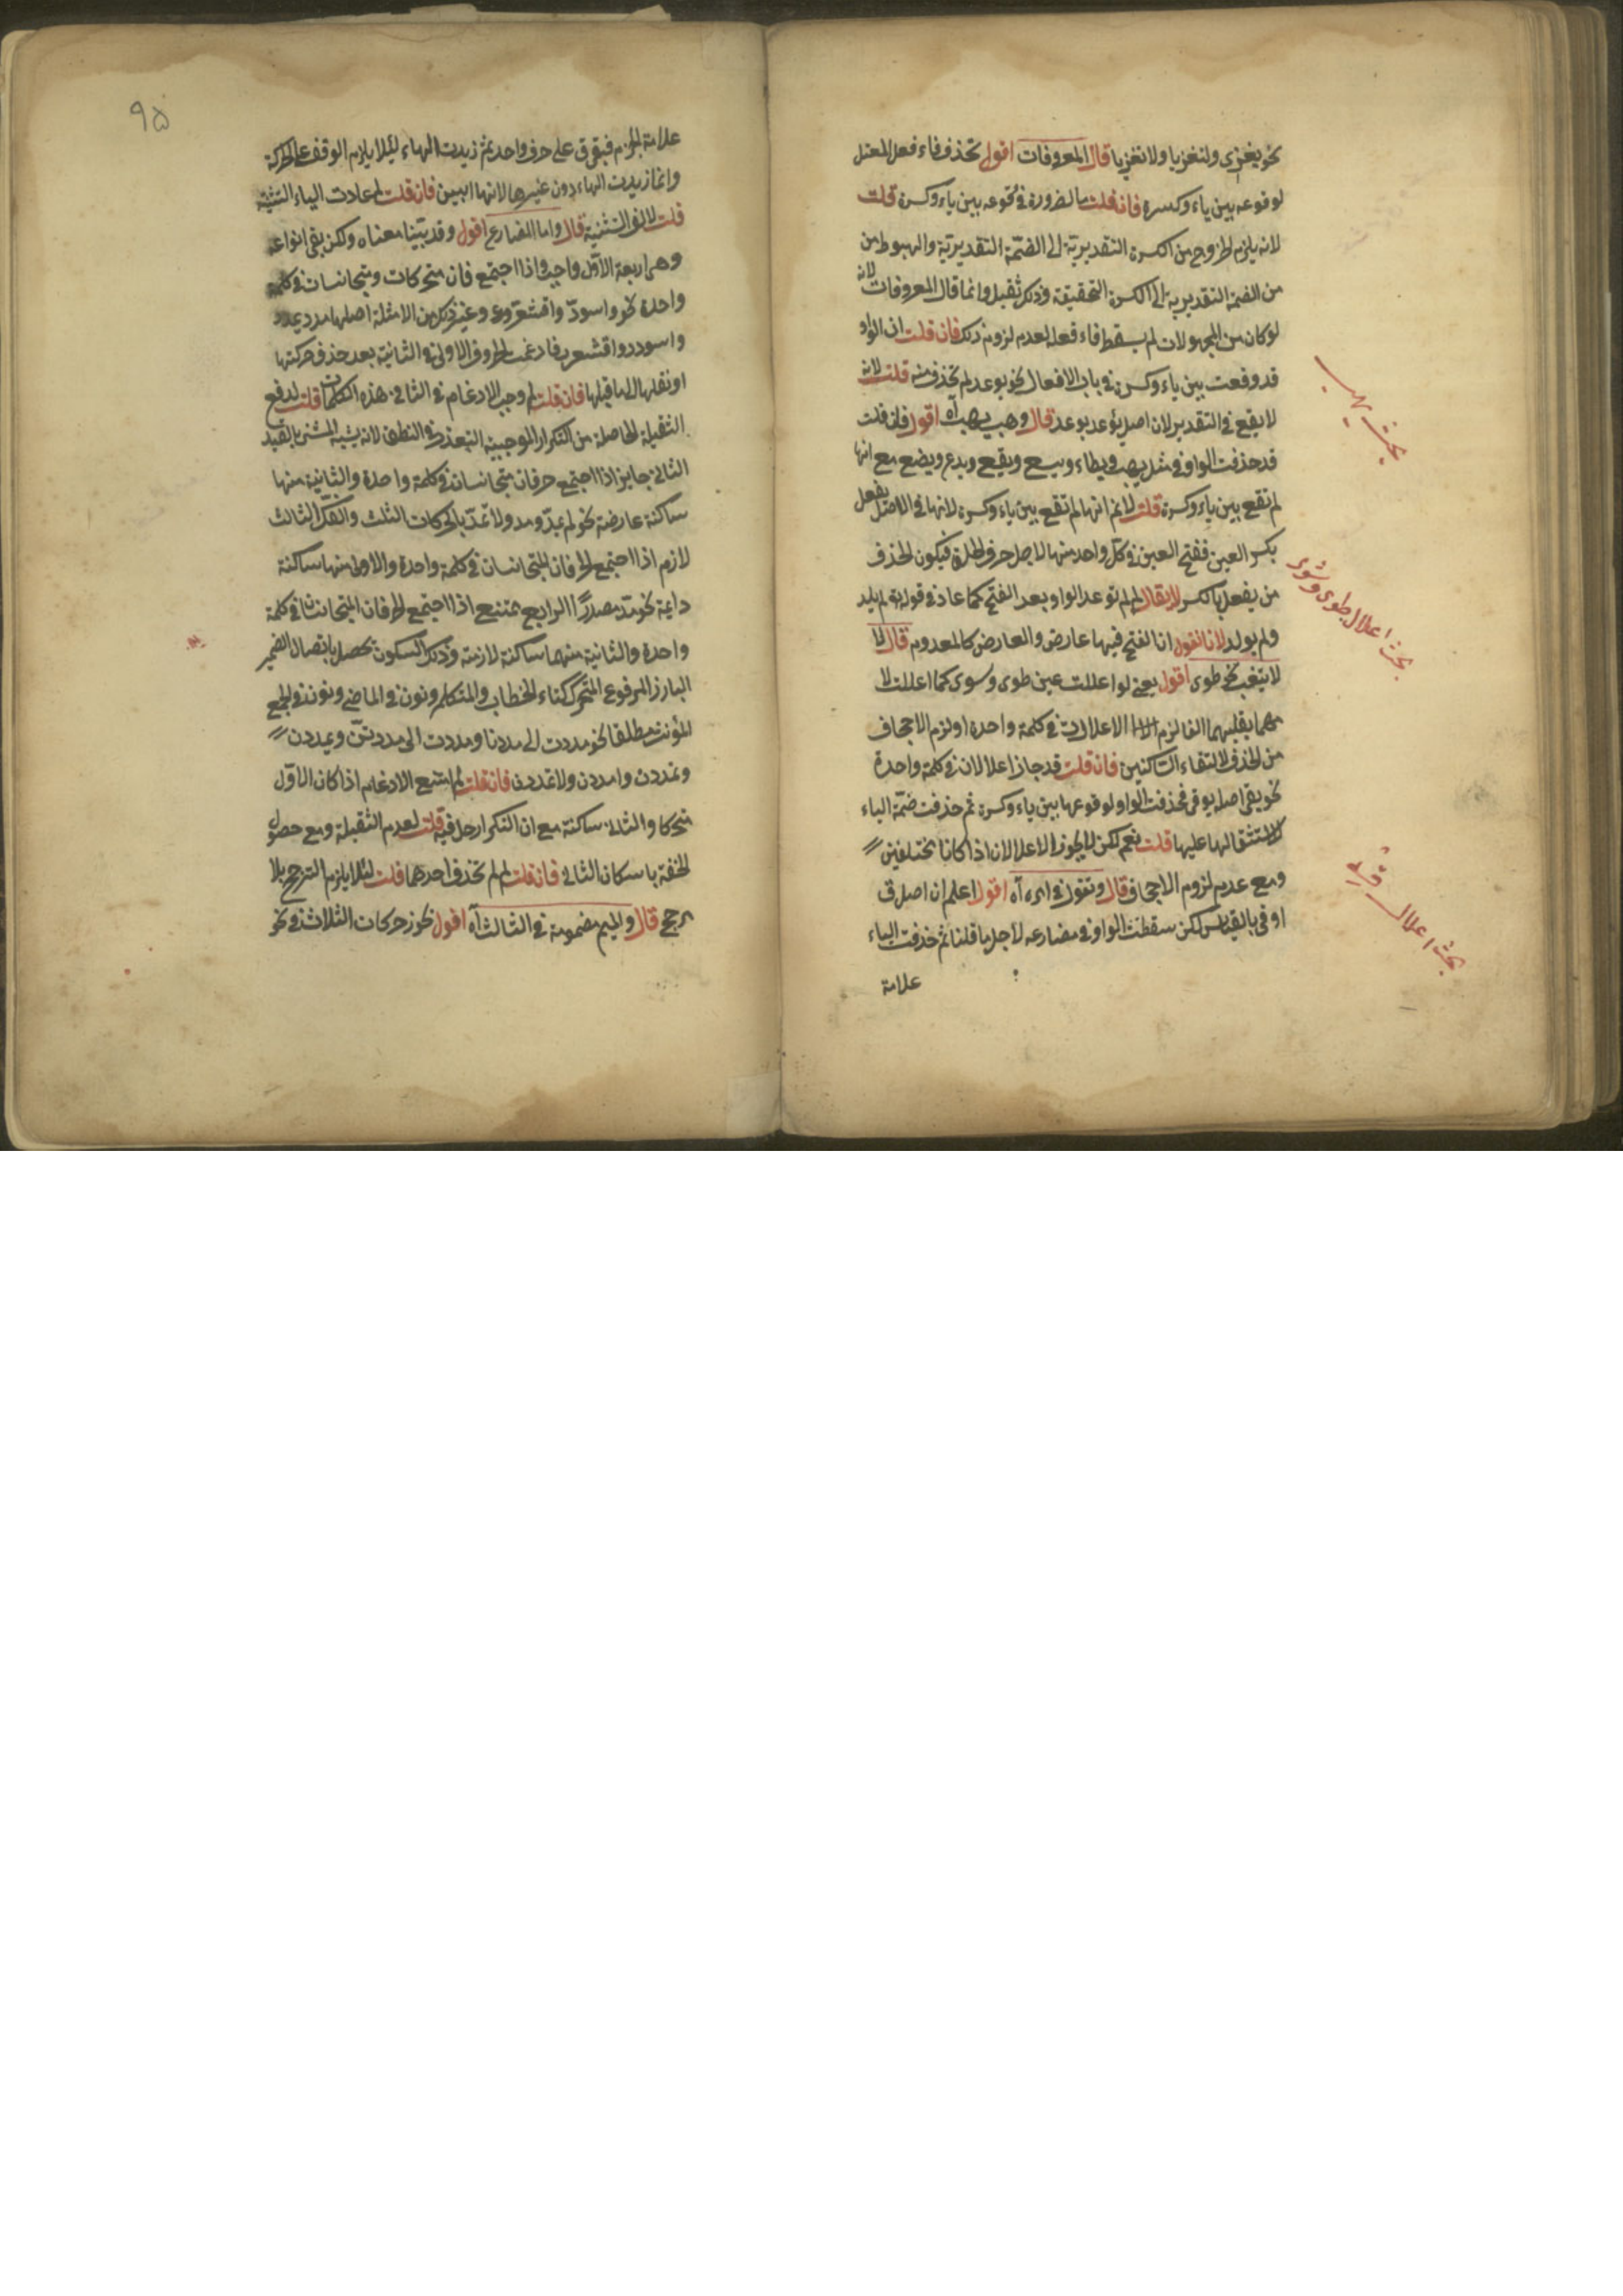 نحو يغزى ولتغزيا ولا تغزيا قال المعروفات اقول تحذف فاء فعل المعتل
لوقوعه بين ياء وكسرة فان قلت ما الضرورة فى وقوعه بين ياء وكسرة قلت
لانه يلزم الخروج من الكسرة التقديرية الى الضمة التقديرية والهبوط من
من الضمة التقديرية الى الكسرة التحقيقة وذلك ثقيل وانما قال المعروفات لانه
لو كان من المجهولات لم يسقط فاء فعله لعدم لزوم ذلك فان قلت ان الواو
قد وقعت بين ياء وكسرة فى باب الافعال نحو يوعد لم تحذف منه قلت لانه
لا يقع فى التقدير لان اصل يوعد يؤوعد قال وهب يهب آه اقول فان قلت
قد حذفت الواو فى مثل يهب ويطاء ويسع ويقع ويدع ويضع مع انها
لم تقع بين ياء وكسرة قلت لا نم انها لم تقع بين ياء وكسرة لانها فى الاصل يفعل
بكسر العين ففتح العين فى كل واحد منها لاجل حرف الحلق فيكون الحذف
من يفعل بالكسر لا يقال لم لم توعد الواو بعد الفتح كما عاد فى قوله تع لم يلد
ولم يولد لانا نقول ان الفتح فيها عارض والعارض كالمعدوم قال لما
اقول يعنى لو اعللت عين طوى وسوى كما اعللت لا
مهما يقلبهما الفا لزم الاعلالان فى كلمة واحدة او لزم الاجحاف
من الحذف لالتقاء الساكنين فان قلت قد جاز اعلالان فى كلمة واحدة
نحو يقى اصله يوقى فحذفت الواو لوقوعها بين ياء وكسرة ثم حذفت ضمة الياء
لاستثقالها عليها قلت نعم لكن لا يجوز الاعلالان اذا كانا مختلفين
ومع عدم لزوم الاجحاف قال وتقول فى امره آه اقول اعلم ان اصل ق
اوقى بالقياس لكن سقطت الواو فى مضارعه لاجل ما قلنا ثم حذفت الياء
علامة
بحث يهب
بحث اعلال طوى وشوى
بحث اعلال قه
٩٥
علامة الجزم فبقى ق على حرف واحد ثم زيدت الهاء لئلا يلزم الوقف على الحركة
وانما زيدت الهاء دون غيرها لانها ابين فان قلت لم عادت الياء التثنية
قلت لالف التثنية قال واما المضارع اقول وقد بينا معناه ولكن بقى انواعه
وهى اربعة الاول واجب واذا اجتمع فان متحركات ومتجانسان فى كلمة
واحدة نحو واسود واقشعر وغير ذلك من الامثلة اصلها مدد يمدد
واسودد واقشعرر فادغمت الحروف الاولى فى الثانية بعد حذف حركتها
او نقلها الى ما قبلها فان قلت لم وجب الادغام فى الثانى هذه الكلمات قلت لدفع
الثقيلة الحاصلة من التكرار الموجبة التعذر فى النطق لانه يشبه المشى بالقيد
الثانى جايز اذا اجتمع حرفان متجانسان فى كلمة واحدة والثانية منها
ساكنة عارضة نحو لم يمد ومد ولا تمد بالحركات الثلث والفك الثالث
لازم اذا اجتمع الحرفان المتجانسان فى كلمة واحدة والاولى منها ساكنة
دايمة نحو مد مصدرا الرابع ممتنع اذا اجتمع الحرفان المتجانسان فى كلمة
واحدة والثانية منهما ساكنة لازمة وذلك السكون يحصل باتصال الضمير
البارز المرفوع المتحرك كتاء الخطاب والمتكلم ونون فى الماضى ونون فى الجمع
المؤنث مطلقا نحو مددت الى مددنا ومددت الى مددتن ويمددن
وتمددن وامددن ولا تمددن فان قلت لم امتنع الادغام اذا كان الاول
متحركا والثانى ساكنة مع ان التكرار حل فيه قلت لعدم الثقيلة ومع حصول
الخفة باسكان الثانى فان قلت لم لم تحذف احدهما قلت لئلا يلزم الترجح بلا
مرجح قال والميم مضمومة فى الثالث آه اقول يجوز حركات الثلاث فى نحو